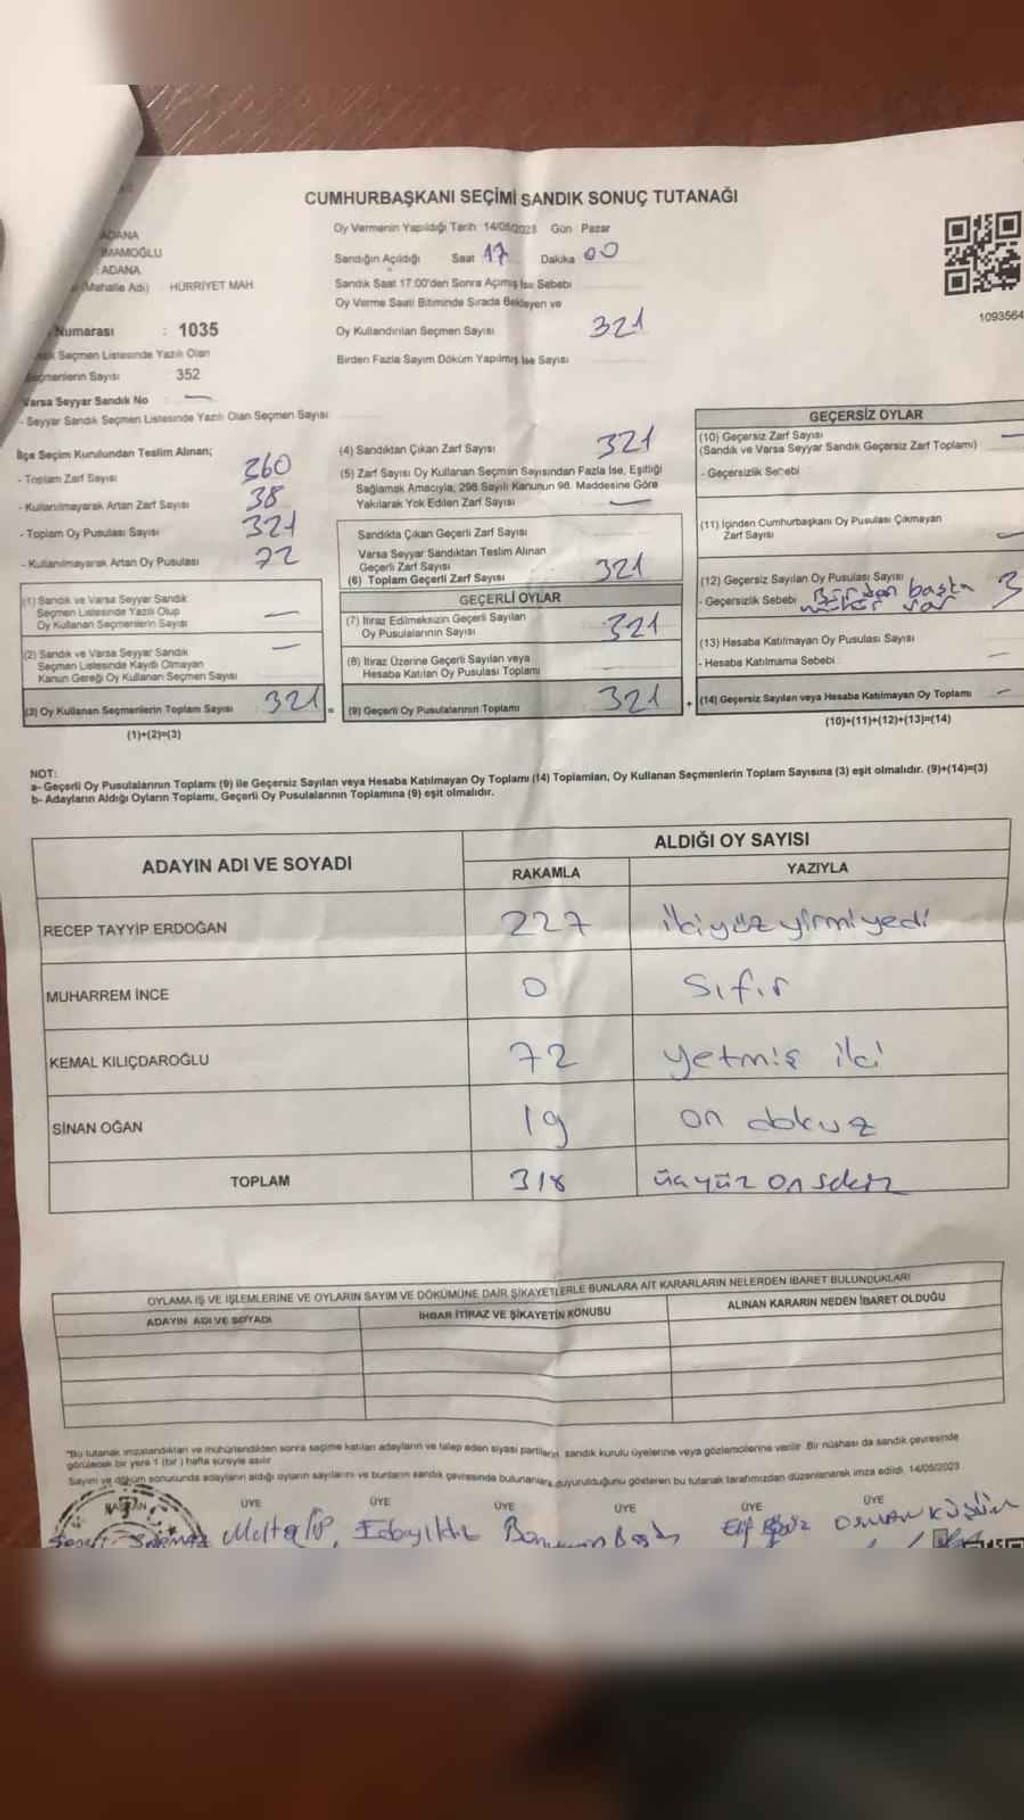 CUMHURBAŞKANI SEÇİMİ SANDIK SONUÇ TUTANAĞI
ADANA
İMAMOĞLU
ADANA
Mahalle Adı) HÜRRİYET MAH
Numarası : 1035
Seçmen Listesinde Yazılı Olan
Seçmenlerin Sayısı 352
Varsa Seyyar Sandık No —
- Seyyar Sandık Seçmen Listesinde Yazılı Olan Seçmen Sayısı
Oy Vermenin Yapıldığı Tarih 14/05/2023 Gün Pazar
Sandığın Açıldığı Saat 17 Dakika 00
Sandık Saat 17:00'den Sonra Açılmış İse Sebebi
Oy Verme Saati Bitiminde Sırada Bekleyen ve
Oy Kullandırılan Seçmen Sayısı 321
Birden Fazla Sayım Döküm Yapılmış İse Sayısı
1093564
İlçe Seçim Kurulundan Teslim Alınan;
- Toplam Zarf Sayısı 360
- Kullanılmayarak Artan Zarf Sayısı 38
- Toplam Oy Pusulası Sayısı 321
- Kullanılmayarak Artan Oy Pusulası 72
(1) Sandık ve Varsa Seyyar Sandık
Seçmen Listesinde Yazılı Olup
Oy Kullanan Seçmenlerin Sayısı —
(2) Sandık ve Varsa Seyyar Sandık
Seçmen Listesinde Kayıtlı Olmayan
Kanun Gereği Oy Kullanan Seçmen Sayısı —
(3) Oy Kullanan Seçmenlerin Toplam Sayısı 321 =
(1)+(2)=(3)
(4) Sandıktan Çıkan Zarf Sayısı 321
(5) Zarf Sayısı Oy Kullanan Seçmen Sayısından Fazla İse, Eşitliği
Sağlamak Amacıyla, 298 Sayılı Kanunun 98. Maddesine Göre
Yakılarak Yok Edilen Zarf Sayısı —
Sandıkta Çıkan Geçerli Zarf Sayısı
Varsa Seyyar Sandıktan Teslim Alınan
Geçerli Zarf Sayısı
(6) Toplam Geçerli Zarf Sayısı 321
GEÇERLİ OYLAR
(7) İtiraz Edilmeksizin Geçerli Sayılan
Oy Pusulalarının Sayısı 321
(8) İtiraz Üzerine Geçerli Sayılan veya
Hesaba Katılan Oy Pusulası Toplamı
(9) Geçerli Oy Pusulalarının Toplamı 321 +
GEÇERSİZ OYLAR
(10) Geçersiz Zarf Sayısı —
(Sandık ve Varsa Seyyar Sandık Geçersiz Zarf Toplamı)
- Geçersizlik Sebebi
(11) İçinden Cumhurbaşkanı Oy Pusulası Çıkmayan
Zarf Sayısı —
(12) Geçersiz Sayılan Oy Pusulası Sayısı 3
- Geçersizlik Sebebi Birden başta
mühür var
(13) Hesaba Katılmayan Oy Pusulası Sayısı
- Hesaba Katılmama Sebebi —
(14) Geçersiz Sayılan veya Hesaba Katılmayan Oy Toplamı —
(10)+(11)+(12)+(13)=(14)
NOT:
a- Geçerli Oy Pusulalarının Toplamı (9) ile Geçersiz Sayılan veya Hesaba Katılmayan Oy Toplamı (14) Toplamları, Oy Kullanan Seçmenlerin Toplam Sayısına (3) eşit olmalıdır. (9)+(14)=(3)
b- Adayların Aldığı Oyların Toplamı, Geçerli Oy Pusulalarının Toplamına (9) eşit olmalıdır.
ADAYIN ADI VE SOYADI ALDIĞI OY SAYISI
RAKAMLA YAZIYLA
RECEP TAYYİP ERDOĞAN 227 ikiyüz yirmi yedi
MUHARREM İNCE 0 sıfır
KEMAL KILIÇDAROĞLU 72 yetmiş iki
SİNAN OĞAN 19 on dokuz
TOPLAM 318 üçyüz on sekiz
OYLAMA İŞ VE İŞLEMLERİNE VE OYLARIN SAYIM VE DÖKÜMÜNE DAİR ŞİKAYETLERLE BUNLARA AİT KARARLARIN NELERDEN İBARET BULUNDUKLARI
ADAYIN ADI VE SOYADI İHBAR İTİRAZ VE ŞİKAYETİN KONUSU ALINAN KARARIN NEDEN İBARET OLDUĞU
"Bu tutanak imzalandıktan ve mühürlendikten sonra seçime katılan adayların ve talep eden siyasi partilerin sandık kurulu üyelerine veya gözlemcilerine verilir. Bir nüshası da sandık çevresinde
görülecek bir yere 1 (bir) hafta süreyle asılır
Sayım ve döküm sonucunda adayların aldığı oyların sayılarını ve bunların sandık çevresinde bulunanlara duyurulduğunu gösteren bu tutanak tarafımızdan düzenlenerek imza edildi. 14/05/2023
BAŞKAN ÜYE ÜYE ÜYE ÜYE ÜYE ÜYE